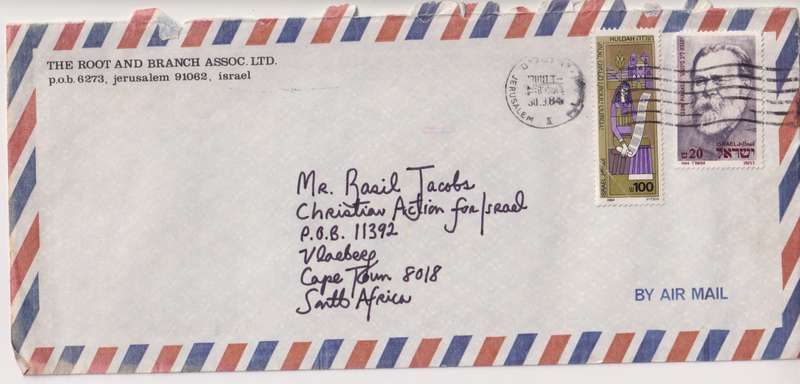 THE ROOT AND BRANCH ASSOC. LTD.
p.o.b. 6273, jerusalem 91062, israel
HULDAH חולדה
ISRAEL
100
1984
ISRAEL ישראל
20
JERUSALEM
Mr. Basil Jacobs
Christian Action for Israel
P.O.B. 11392
Vlaeberg
Cape Town 8018
South Africa
BY AIR MAIL